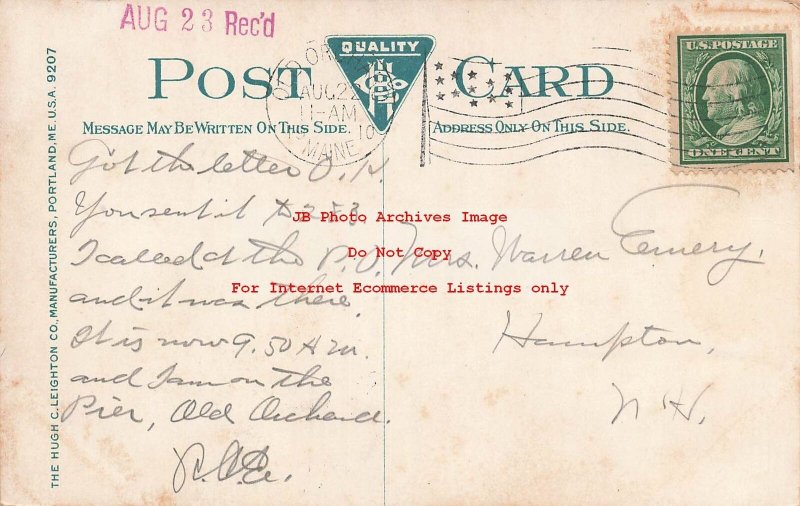 AUG 23 Rec'd
QUALITY
POST CARD
U.S. POSTAGE
ONE CENT
AUG 22
11-AM
10
MAINE
MESSAGE MAY BE WRITTEN ON THIS SIDE.
ADDRESS ONLY ON THIS SIDE.
THE HUGH C. LEIGHTON CO., MANUFACTURERS, PORTLAND, ME. U.S.A. 9207
Got the letter O.K
You sent it to 253
I called at the P.O.
and it was there.
It is now 9.50 A m.
and I am on the
Pier, Old Orchard.
Mrs. Warren Emery,
Hampton,
N.H.
JB Photo Archives Image
Do Not Copy
For Internet Ecommerce Listings only